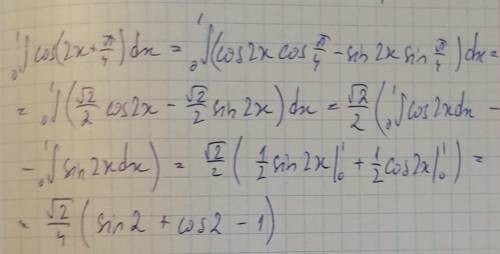 ₀∫¹cos(2x+π/4)dx = ₀∫¹(cos2x cos π/4 - sin2x sin π/4)dx=
= ₀∫¹(√2/2 cos2x - √2/2 sin2x)dx = √2/2(₀∫¹cos2xdx -
- ₀∫¹sin2xdx) = √2/2(1/2 sin2x|₀¹ + 1/2 cos2x|₀¹) =
= √2/4(sin2 + cos2 - 1)